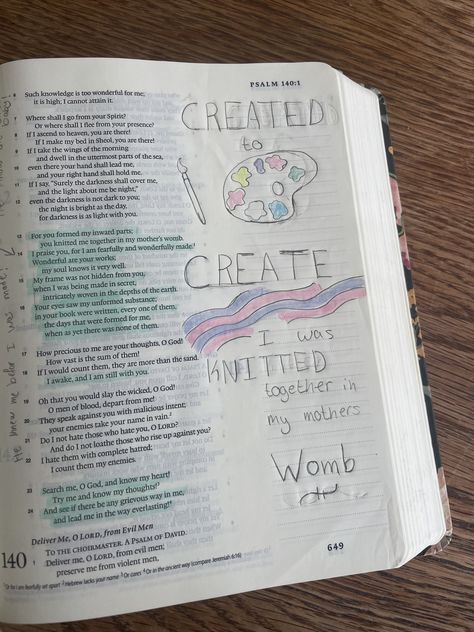 PSALM 140:1
6 Such knowledge is too wonderful for me;
it is high; I cannot attain it.
7 Where shall I go from your Spirit?
Or where shall I flee from your presence?
8 If I ascend to heaven, you are there!
If I make my bed in Sheol, you are there!
9 If I take the wings of the morning
and dwell in the uttermost parts of the sea,
10 even there your hand shall lead me,
and your right hand shall hold me.
11 If I say, "Surely the darkness shall cover me,
and the light about me be night,"
12 even the darkness is not dark to you;
the night is bright as the day,
for darkness is as light with you.
13 For you formed my inward parts;
you knitted me together in my mother's womb.
14 I praise you, for I am fearfully and wonderfully made.¹
Wonderful are your works;
my soul knows it very well.
15 My frame was not hidden from you,
when I was being made in secret,
intricately woven in the depths of the earth.
16 Your eyes saw my unformed substance;
in your book were written, every one of them,
the days that were formed for me,
when as yet there was none of them.
17 How precious to me are your thoughts, O God!
How vast is the sum of them!
18 If I would count them, they are more than the sand.
I awake, and I am still with you.
19 Oh that you would slay the wicked, O God!
O men of blood, depart from me!
20 They speak against you with malicious intent;
your enemies take your name in vain.²
21 Do I not hate those who hate you, O LORD?
And do I not loathe those who rise up against you?
22 I hate them with complete hatred;
I count them my enemies.
23 Search me, O God, and know my heart!
Try me and know my thoughts!³
24 And see if there be any grievous way in me,
and lead me in the way everlasting!⁴
Deliver Me, O LORD, from Evil Men
TO THE CHOIRMASTER. A PSALM OF DAVID.
140 1 Deliver me, O LORD, from evil men;
preserve me from violent men,
¹ Or for I am fearfully set apart ² Hebrew lacks your name ³ Or cares ⁴ Or in the ancient way (compare Jeremiah 6:16)
649
CREATED
to
CREATE
I was
KNITTED
together in
my mothers
Womb
He knew me before I was made!